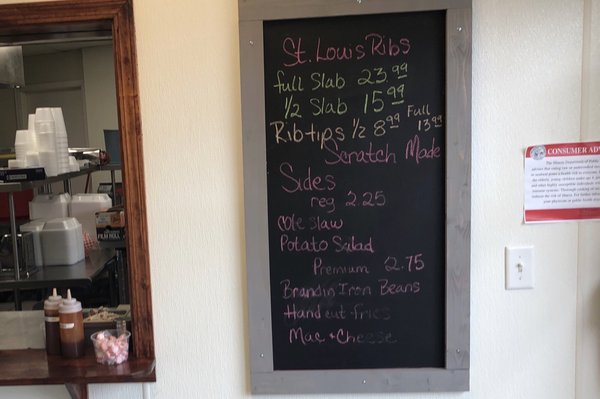 St. Louis Ribs
full Slab 23.99
1/2 Slab 15.99
Rib tips 1/2 8.99 Full 13.99
Scratch Made
Sides
reg 2.25
cole slaw
Potato Salad
Premium 2.75
Brandin Iron Beans
Hand cut fries
Mac + Cheese
CONSUMER AD